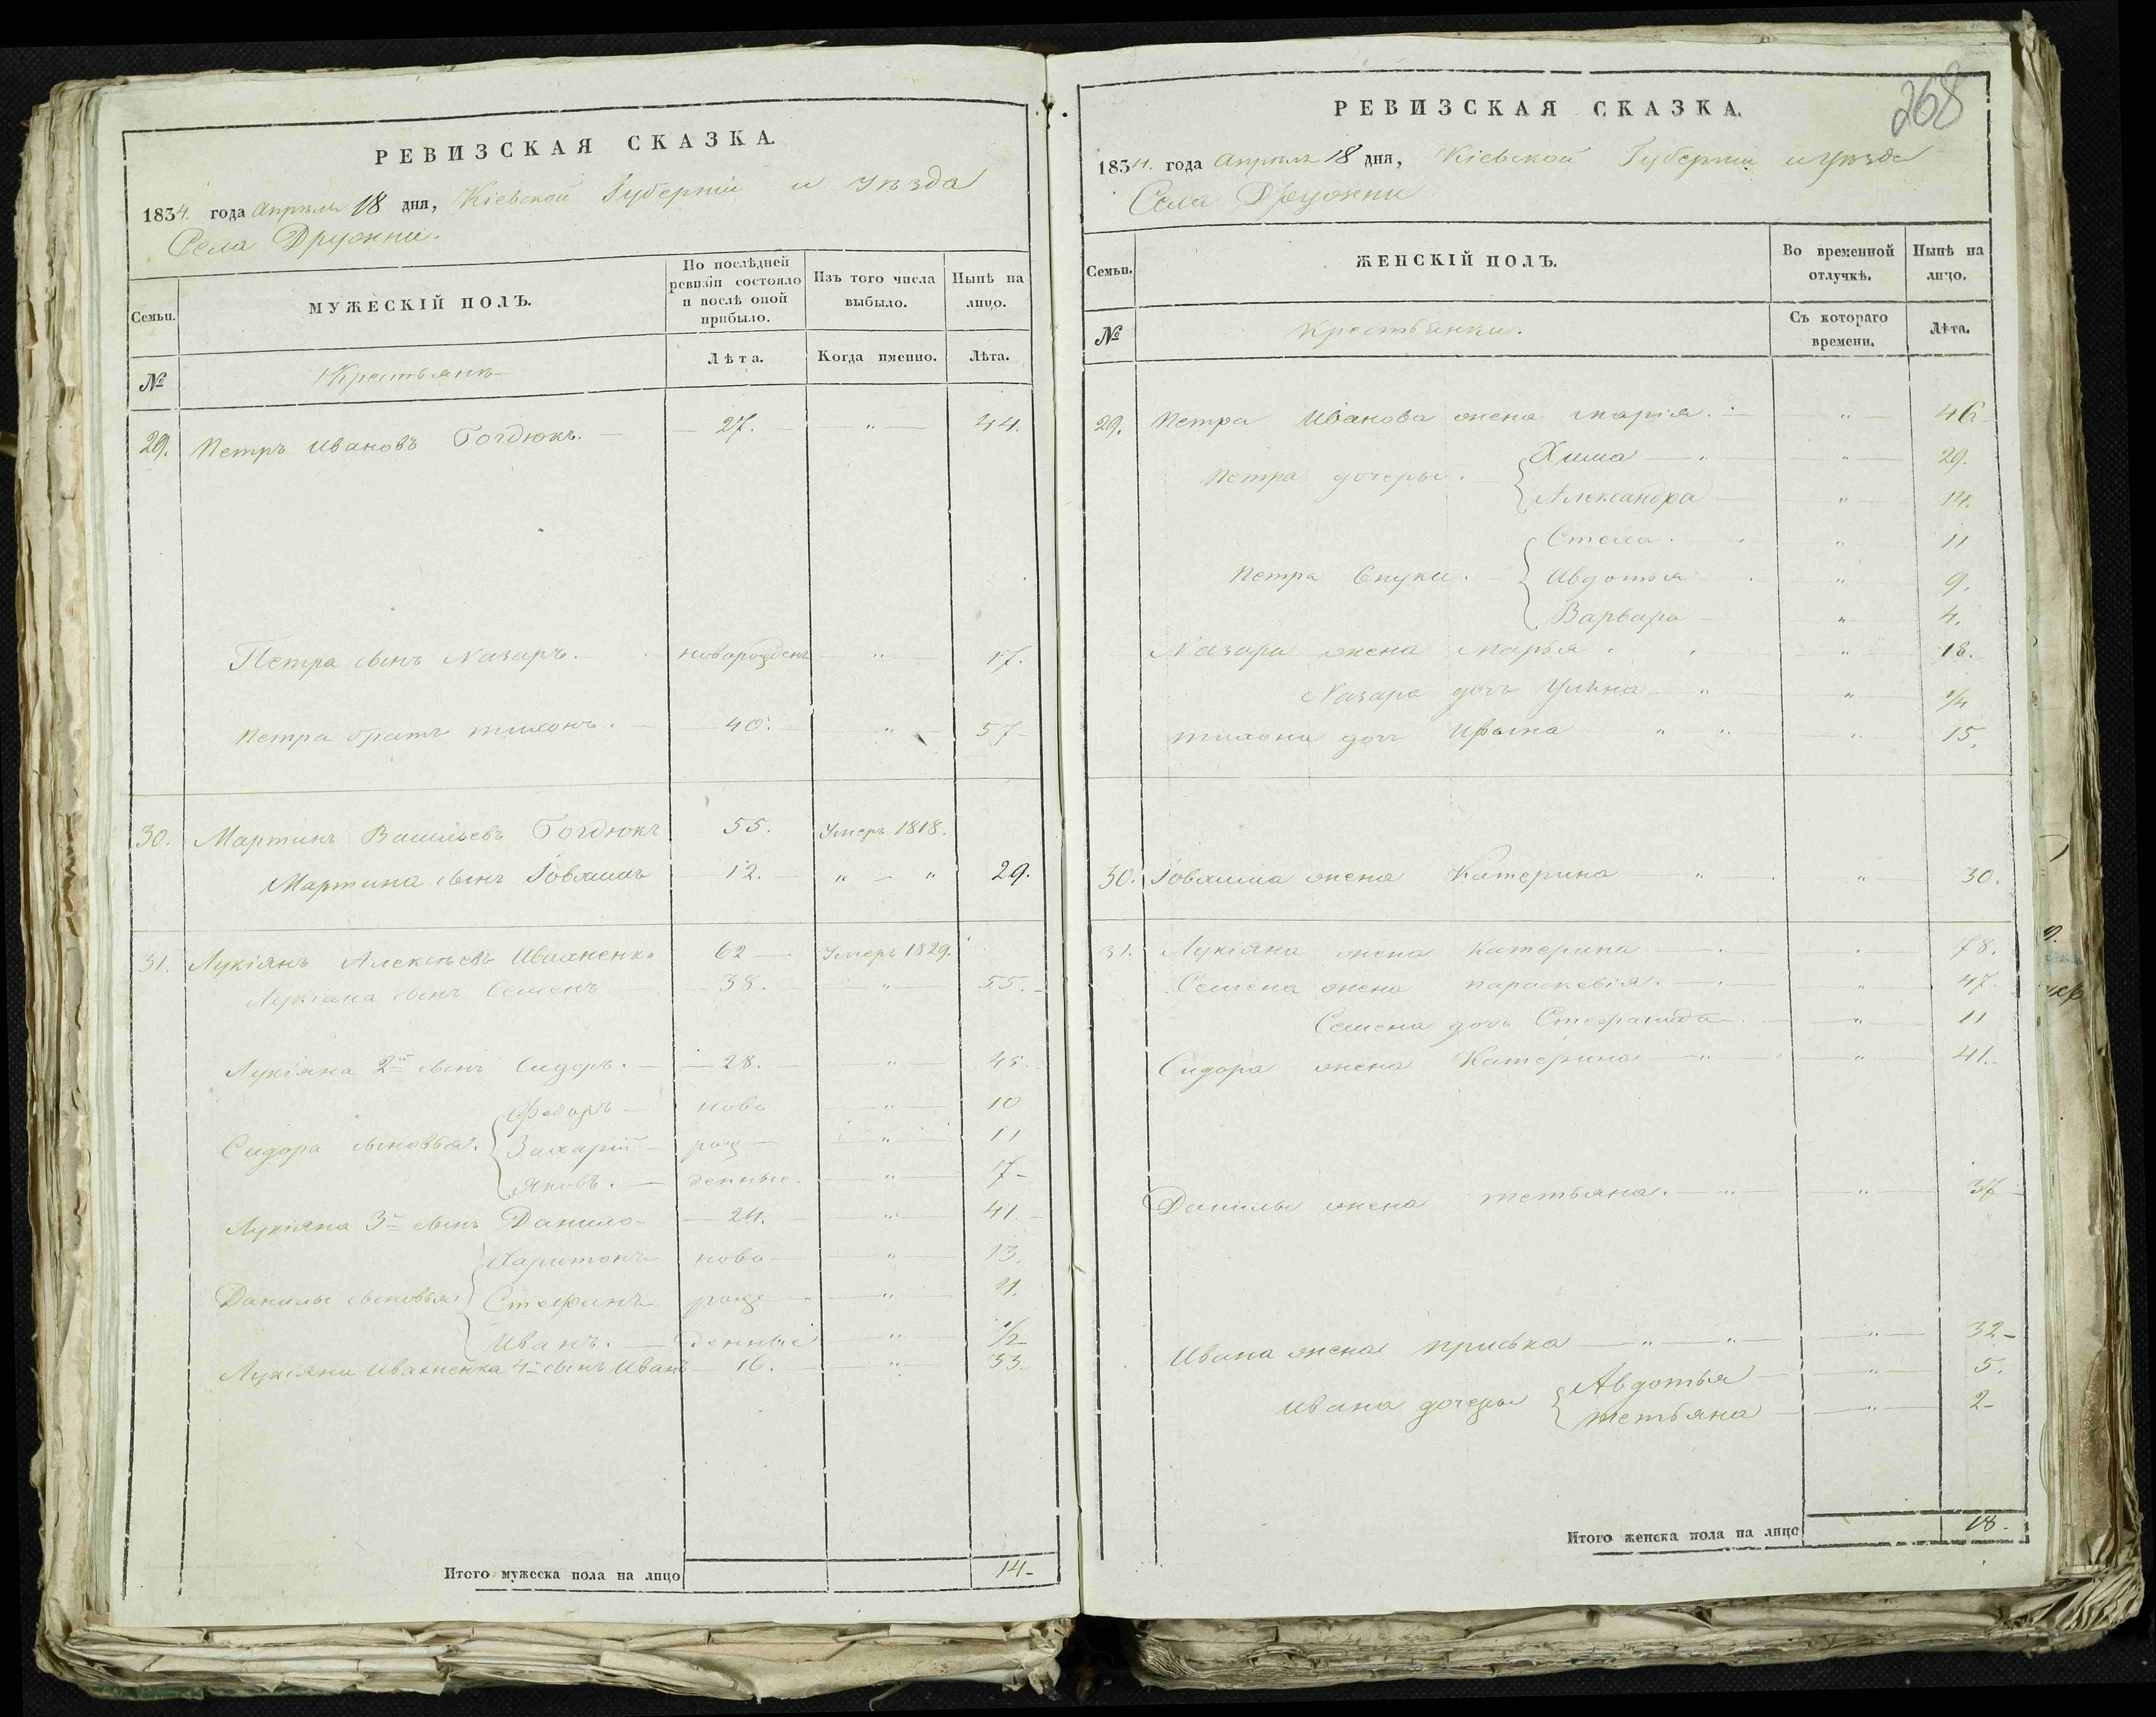 РЕВИЗСКАЯ СКАЗКА.
1834. года Апрѣля 18 дня, Кіевской Губерніи и уѣзда
Села Дружни.
Семьи. МУЖЕСКІЙ ПОЛЪ. По послѣдней ревизіи состояло и послѣ оной прибыло. Изъ того числа выбыло. Нынѣ на лицо.
№ Крестьянъ Лѣта. Когда именно. Лѣта.
29. Петръ Ивановъ 27. " 44.
Петра сынъ Назаръ. новорожденъ " 17.
Петра братъ тихонъ. 40. " 57
30. Мартинъ Васильевъ 55. Умеръ 1818.
Мартина сынъ Іовхимъ 12. " " 29.
31. Лукіянъ Алексѣевъ Ивахненко 62 Умеръ 1829.
Лукіана сынъ Семенъ 38. " 55.
Лукіяна 2й сынъ Сидоръ. 28. " 45.
Федоръ ново " 10
Сидора сыновья. Захарій рож " 11
Яковъ. денные. " 17
Лукіяна 3й сынъ Данило 24. " 41.
Харитонъ ново " 13.
Данилы сыновья Стефанъ рож " 4.
Иванъ. денные " 1/2
Лукіяна Ивахненка 4й сынъ Иванъ 16. " 33.
Итого мужеска пола на лицо 14
268
РЕВИЗСКАЯ СКАЗКА.
1834. года Апрѣля 18 дня, Кіевской Губерніи и уѣзда
Села Дружни
Семьи. ЖЕНСКІЙ ПОЛЪ. Во временной отлучкѣ. Нынѣ на лицо.
№ Крестьянки. Съ котораго времени. Лѣта.
29. Петра Иванова жена марія. " 46
Хима " " 29.
Петра дочеры. Александра " 14.
" 11
Петра внуки. Авдотья " 9.
Варвара " 4.
Назара жена марья " 18.
Назара дочъ Уляна " " 1/4
тихона дочъ " " " 15.
30. Іовхима жена Катерина " " 30.
31. Лукіяна жена Катерина " 78.
Семена жена параскевія. " 47
Семена дочъ Стефанида " 11
Сидора жена Катерина " " 41.
Данилы жена тетьяна. " " 37
Ивана жена приська " " " 32
Авдотья " 5.
Ивана дочеры тетьяна " 2
Итого женска пола на лицо 18.